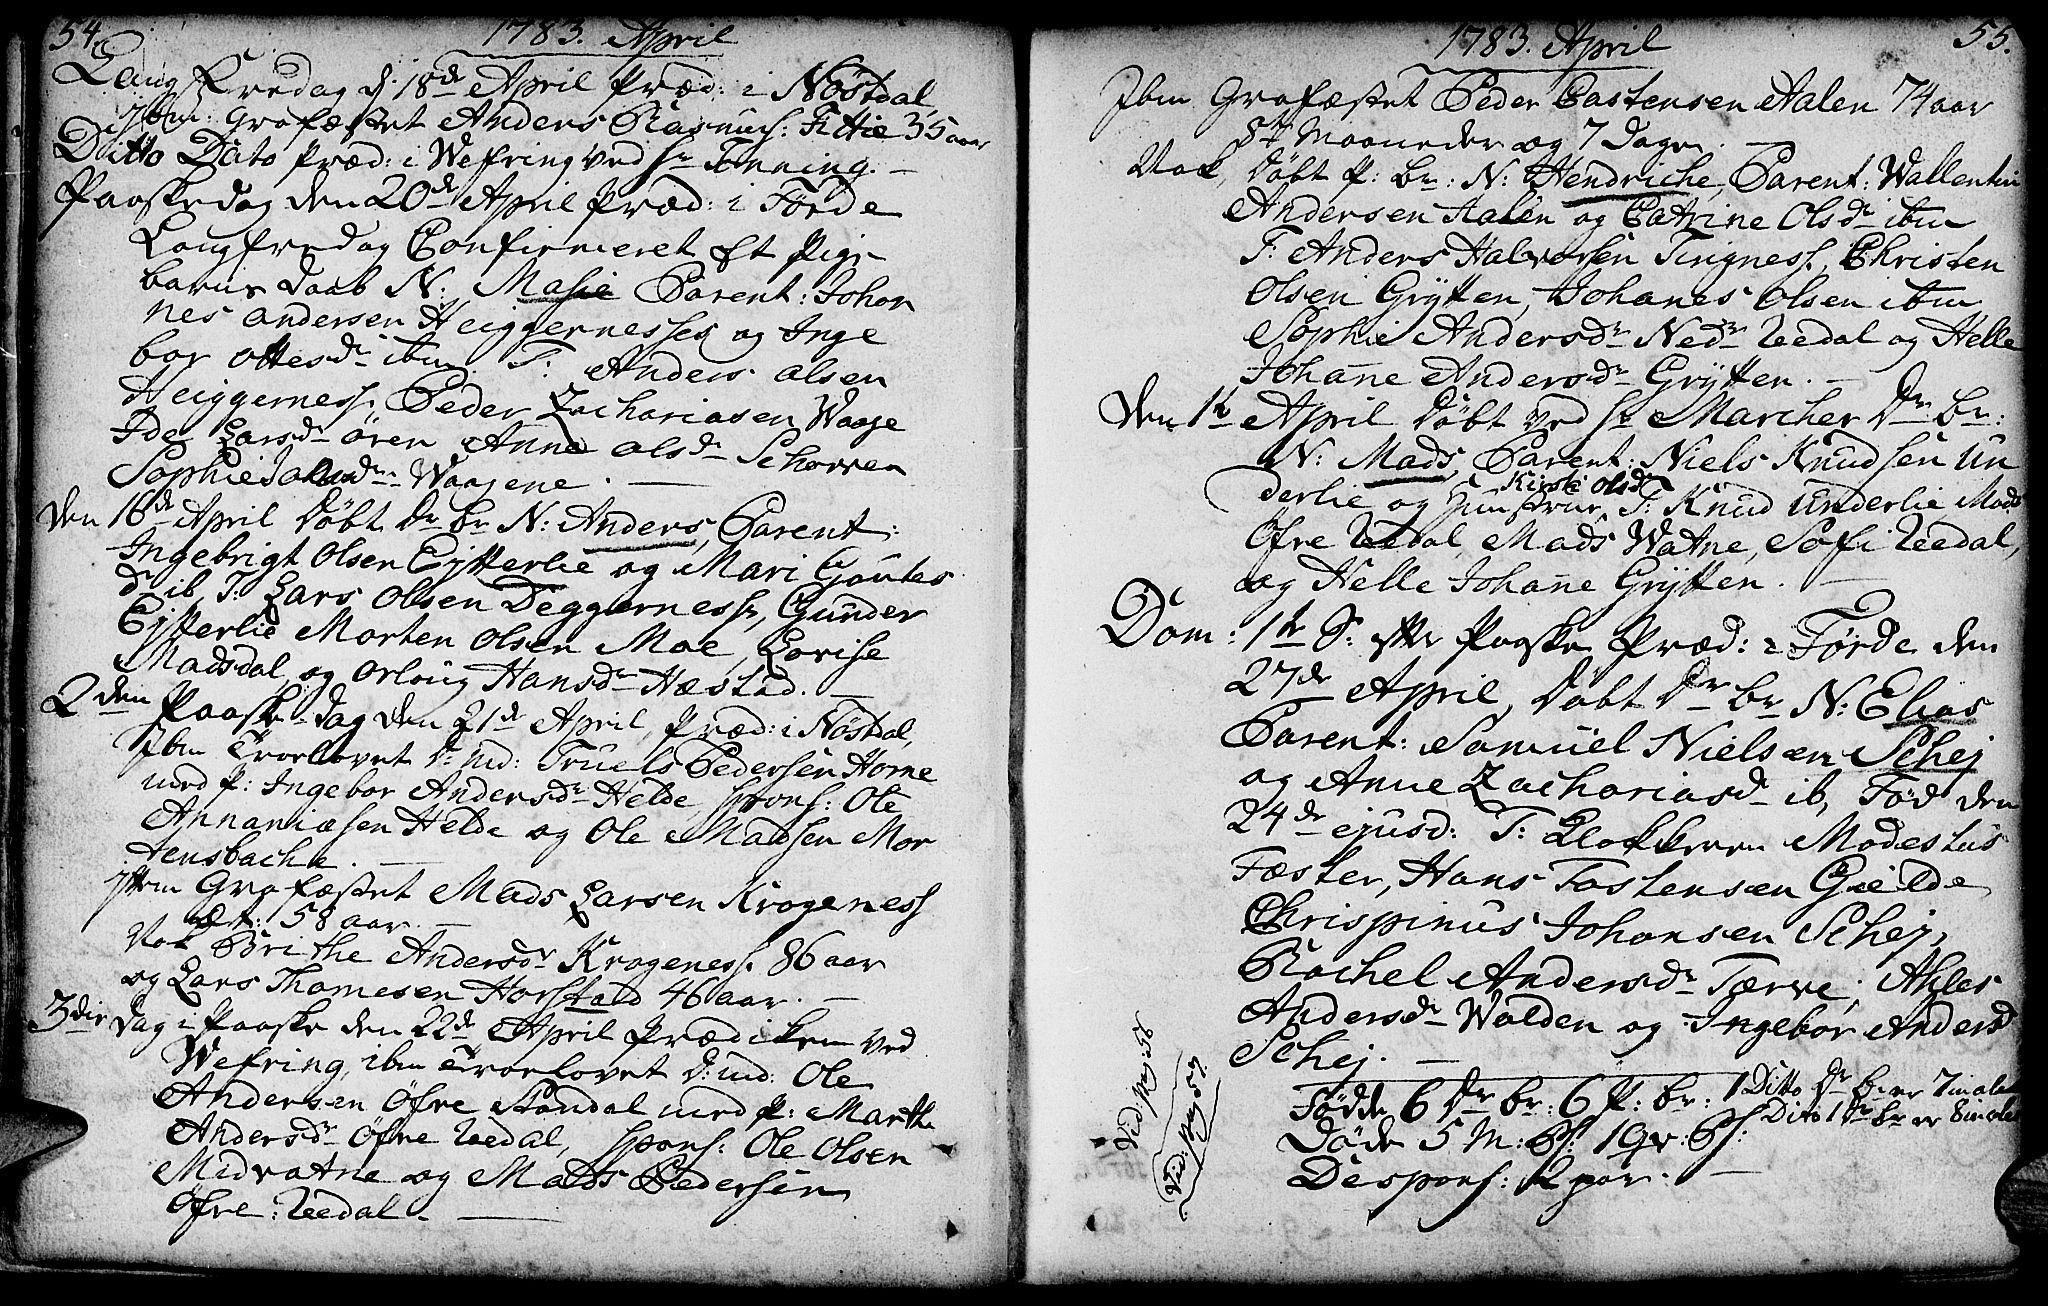 54.
1783. April
Lang Fredag d. 18de April Præd: i Nøstdal
Ibm: Grafæstet Anders Rasmus: Fitie 35 aar
Ditto Dato Præd: i Wefring ved Hr Tønning. —
Paaskedag den 20de April Præd: i Førde
Langfredag Confirmeret Et Pige
barns daab N: Masie Parent: Johan
nes Andersen Heiggernesset og Inge
bor Ottesdr ibm T: Anders Olsen
Heiggerness, Peder Zachariasen Waage
Ide Larsdr Øren Anne Olsdr Schorven
Sophie Waagene. —
den 16de April Døbt Dr br N: Anders, Parent:
Ingebrigt Olsen Eytterlie og Mari Goutes
dr ib, T: Lars Olsen Deggerness, Gunder
Eytterlie Morten Olsen Moe, Lovise
Madsdal og Orloug Hansdr Hæstad. —
2den Paaske-dag den 21de April, Præd: i Nøstdal,
Ibm Trorlovet D: md: Truels Pedersen Horne
med P: Ingebor Andersdr Helde spons: Ole
Annaniæsen Helde og Ole Madsen Mor
tensbache. —
Ibm Grafæstet Mads Larsen Krogeness
æt: 58 aar. —
Nok Brithe Andersdr Krogeness 86 aar
og Lars Thomesen Horstad 46 aar. —
3die Dag i Paaske den 22de April Prædiken ved
Wefring, ibm Trorlovet D: md: Ole
Andersen Øfre Standal med P: Marthe
Andersdr Øfre Uedal, spons: Ole Olsen
Midvatne og Mads Pedersen
Øfre: Uedal. —
1783. April
55.
Ibm Grafæstet Peder Castensen Aalen 74 aar
Maaneder og 7 Dage. —
Nok, Døbt P: Br: N: Hendriche, Parent: Wallentin
Andersen Aalen og Catrine Olsdr ibm
T: Anders Halvorsen Tingness, Christen
Olsen Grytten, Johanes Olsen ibm
Sophie Andersdr Nedr Uedal og Helle
Johanne Andersdr Grytten. —
Den 1te April Døbt ved Hr Marcher Dr br:
N: Mads, Parent: Niels Knudsen Un
Kirsti Olsdr
derlie og Hustrue, T: Knud Underlie Mads
Øfre Uedal, Mads Watne, Sofi Uedal,
og Helle Johanne Grytten. —
Dom: 1te S: efter Paaske Præd: i Førde den
27de April, Døbt Dr br N: Elias
Parent: Samuel Nielsen Schej
og Anne Zachariasdr ib, Fød den
24de ejusd: T: Klokkeren Modestus
Fæster, Hans Tostensen Gielde
Chrispinus Johansen Schej,
Rachel Andersdr Tærve, Ahles
Andersdr Walden og Ingebor Andersd
Schej. —
Fødde 6 Dr br: 6 P: br: 1 Ditto Dr br er 7
Dito 1 Dr br er 8
Døde 5 M: Ps: 1 qv: Ps: —
Despons: 2 par. —
Vid Pag: 56
Vid: Pag 57.